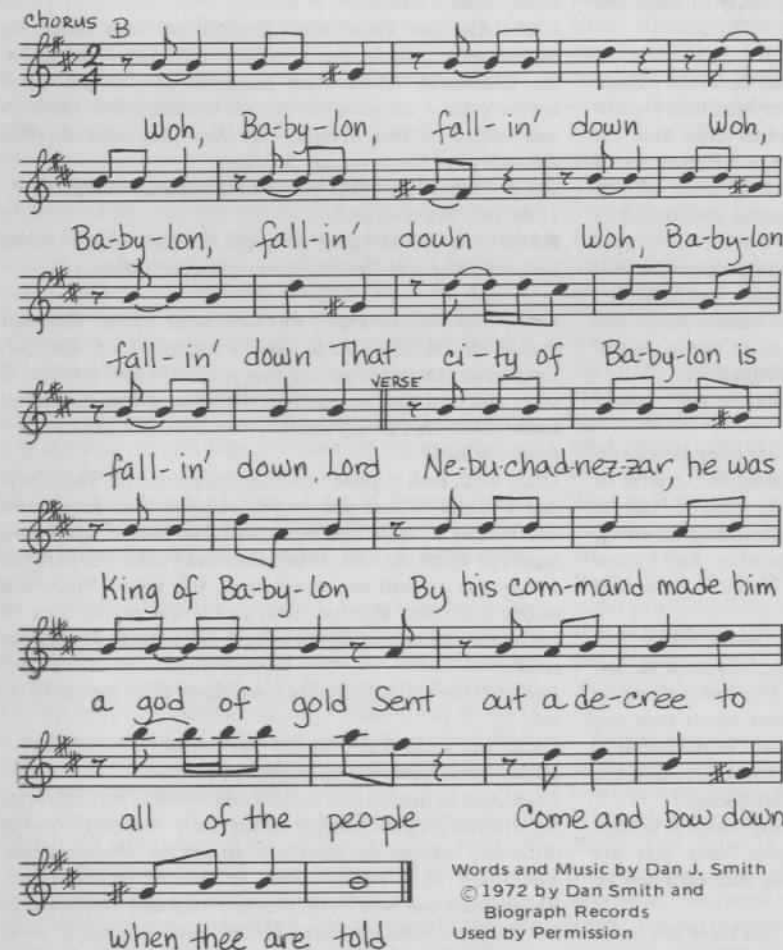 CHORUS B
2
4
Woh, Ba-by-lon, fall-in' down Woh,
Ba-by-lon, fall-in' down Woh, Ba-by-lon
fall-in' down That ci-ty of Ba-by-lon is
VERSE
fall-in' down, Lord Ne-bu-chad-nez-zar, he was
King of Ba-by-lon By his com-mand made him
a god of gold Sent out a de-cree to
all of the peo-ple Come and bow down
when thee are told
Words and Music by Dan J. Smith
© 1972 by Dan Smith and
Biograph Records
Used by Permission